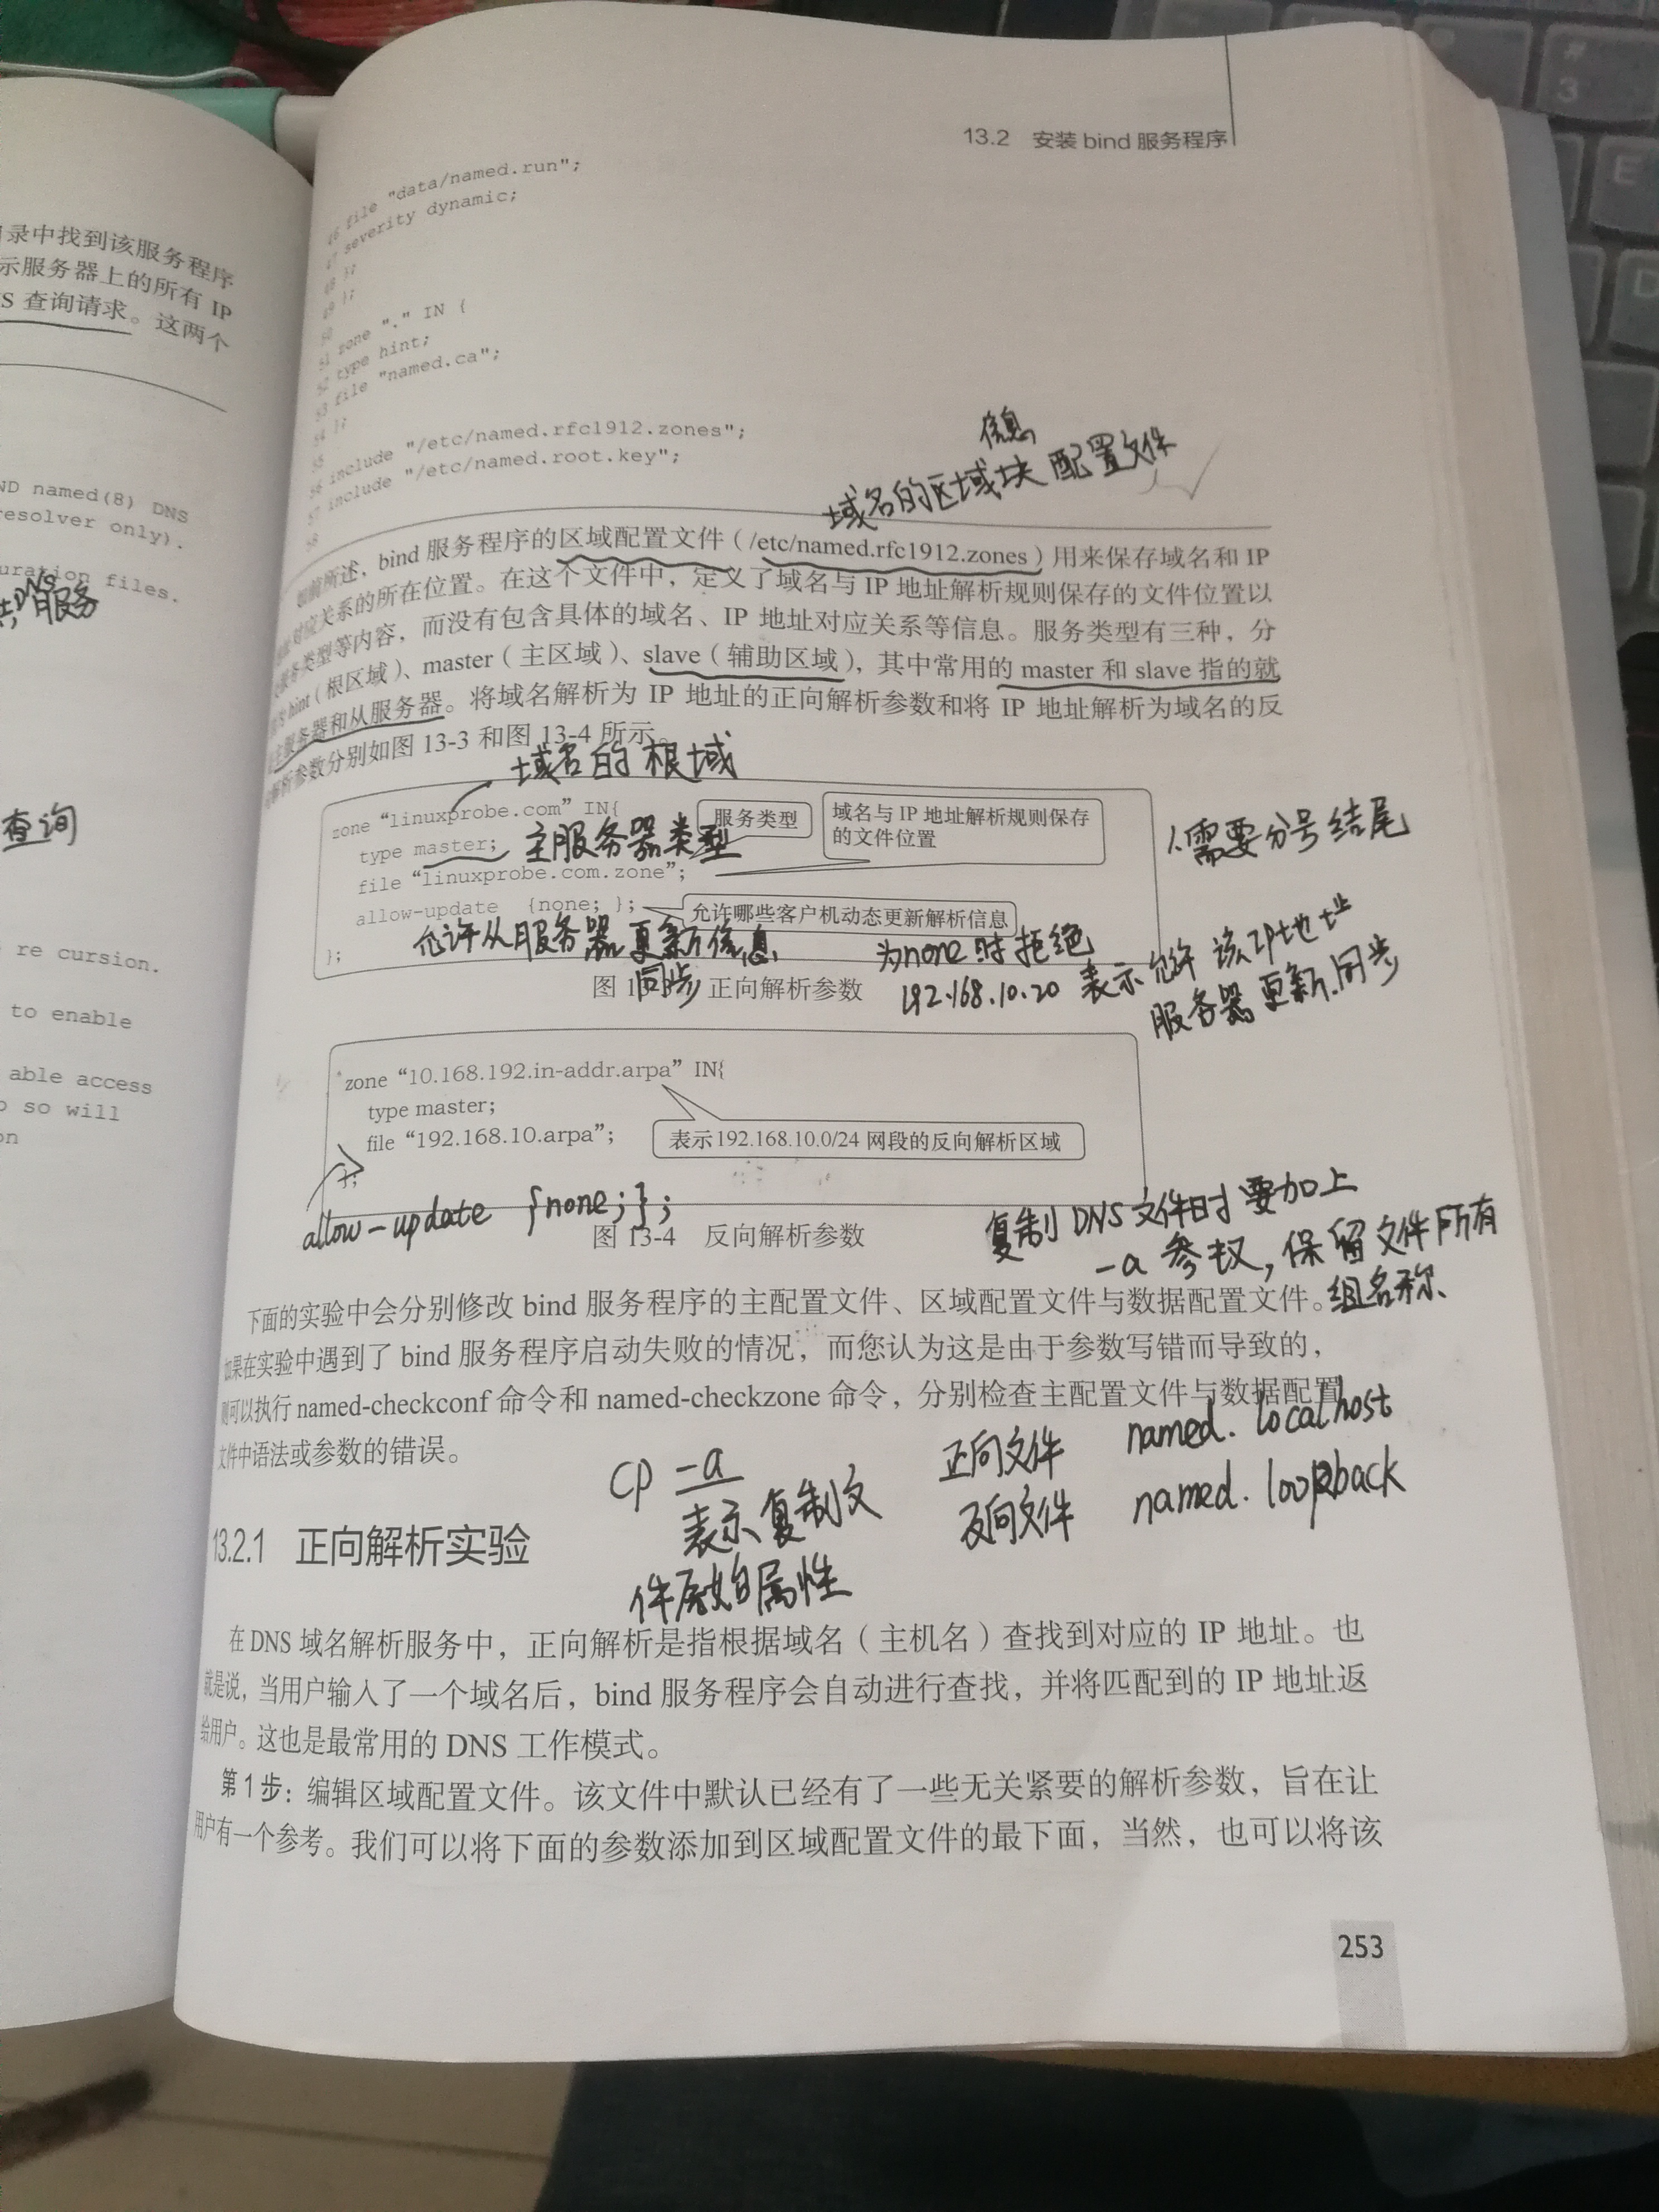 录中找到该服务程序
示服务器上的所有 IP
S 查询请求。这两个
ND named(8) DNS
resolver only).
uration files.
DNS
服务
查询
re cursion.
to enable
able access
so will
on
13.2 安装 bind 服务程序
46 file "data/named.run";
47 severity dynamic;
48 };
49 };
50
51 zone "." IN {
52 type hint;
53 file "named.ca";
54 };
55
56 include "/etc/named.rfc1912.zones";
57 include "/etc/named.root.key";
58
信息
域名的区域块 配置文件
如前所述，bind 服务程序的区域配置文件（/etc/named.rfc1912.zones）用来保存域名和 IP
对应关系的所在位置。在这个文件中，定义了域名与 IP 地址解析规则保存的文件位置以
服务类型等内容，而没有包含具体的域名、IP 地址对应关系等信息。服务类型有三种，分
为 hint（根区域）、master（主区域）、slave（辅助区域），其中常用的 master 和 slave 指的就
主服务器和从服务器。将域名解析为 IP 地址的正向解析参数和将 IP 地址解析为域名的反
解析参数分别如图 13-3 和图 13-4 所示。
域名的 根域
zone “linuxprobe.com” IN{
服务类型
域名与 IP 地址解析规则保存
的文件位置
type master;
主服务器类型
file “linuxprobe.com.zone”;
需要分号结尾
allow-update {none; };
允许哪些客户机动态更新解析信息
允许从服务器更新信息
};
同步
为none时拒绝
192.168.10.20 表示允许 该IP地址
服务器更新.同步
图 1 正向解析参数
zone “10.168.192.in-addr.arpa” IN{
type master;
file “192.168.10.arpa”;
表示192.168.10.0/24 网段的反向解析区域
};
allow-update {none;};
图 13-4 反向解析参数
复制DNS文件时要加上
-a 参权, 保留文件所有
组名称、
下面的实验中会分别修改 bind 服务程序的主配置文件、区域配置文件与数据配置文件。
如果在实验中遇到了 bind 服务程序启动失败的情况，而您认为这是由于参数写错而导致的，
则可以执行 named-checkconf 命令和 named-checkzone 命令，分别检查主配置文件与数据配置
文件中语法或参数的错误。
cp -a
表示复制文
件原始属性
正向文件 named. localhost
反向文件 named. loopback
13.2.1 正向解析实验
在 DNS 域名解析服务中，正向解析是指根据域名（主机名）查找到对应的 IP 地址。也
就是说，当用户输入了一个域名后，bind 服务程序会自动进行查找，并将匹配到的 IP 地址返
给用户。这也是最常用的 DNS 工作模式。
第 1 步：编辑区域配置文件。该文件中默认已经有了一些无关紧要的解析参数，旨在让
用户有一个参考。我们可以将下面的参数添加到区域配置文件的最下面，当然，也可以将该
253